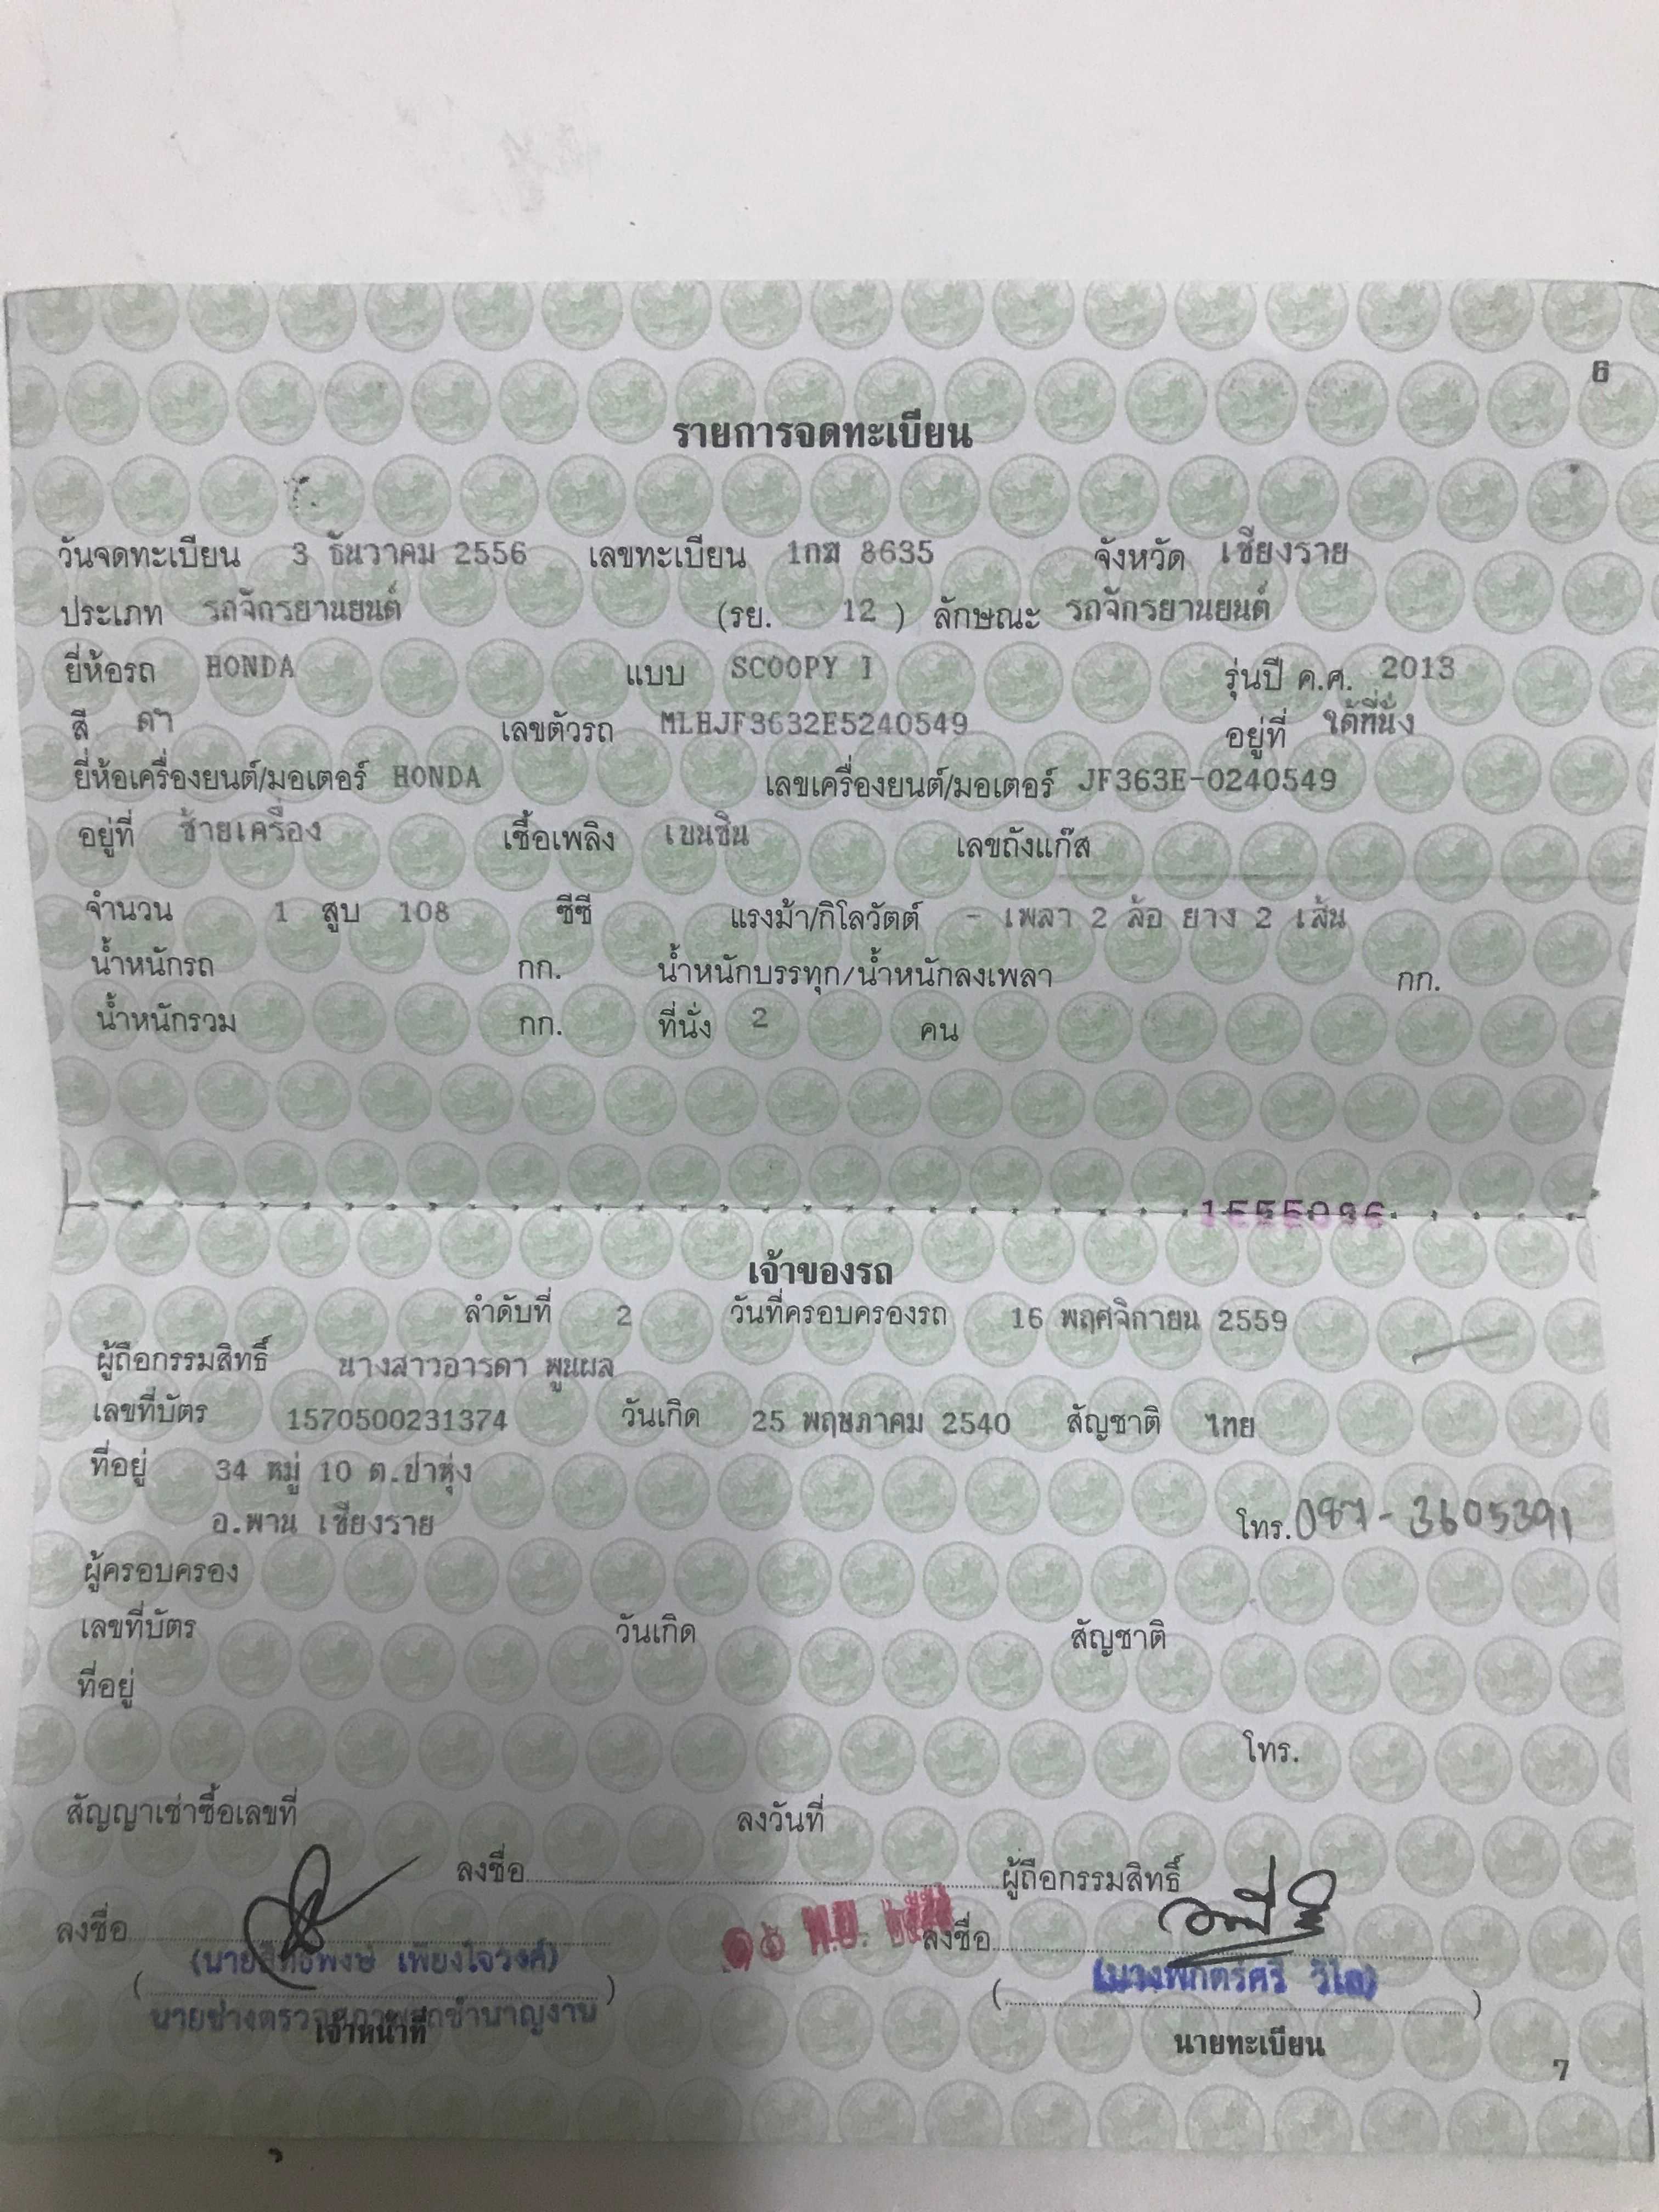 6
รายการจดทะเบียน
วันจดทะเบียน 3 ธันวาคม 2556 เลขทะเบียน 1กฆ 8635 จังหวัด เชียงราย
ประเภท รถจักรยานยนต์ (รย. 12 ) ลักษณะ รถจักรยานยนต์
ยี่ห้อรถ HONDA แบบ SCOOPY I รุ่นปี ค.ศ. 2013
สี ดำ เลขตัวรถ MLHJF3632E5240549 อยู่ที่ ใต้ที่นั่ง
ยี่ห้อเครื่องยนต์/มอเตอร์ HONDA เลขเครื่องยนต์/มอเตอร์ JF363E-0240549
อยู่ที่ ซ้ายเครื่อง เชื้อเพลิง เบนซิน เลขถังแก๊ส
จำนวน 1 สูบ 108 ซีซี แรงม้า/กิโลวัตต์ - เพลา 2 ล้อ ยาง 2 เส้น
น้ำหนักรถ กก. น้ำหนักบรรทุก/น้ำหนักลงเพลา กก.
น้ำหนักรวม กก. ที่นั่ง 2 คน
1555096
เจ้าของรถ
ลำดับที่ 2 วันที่ครอบครองรถ 16 พฤศจิกายน 2559
ผู้ถือกรรมสิทธิ์ นางสาวอารดา พูนผล
เลขที่บัตร 1570500231374 วันเกิด 25 พฤษภาคม 2540 สัญชาติ ไทย
ที่อยู่ 34 หมู่ 10 ต.ป่าหุ่ง
อ.พาน เชียงราย โทร. 087-3605391
ผู้ครอบครอง
เลขที่บัตร วันเกิด สัญชาติ
ที่อยู่
โทร.
สัญญาเช่าซื้อเลขที่ ลงวันที่
ลงชื่อ ผู้ถือกรรมสิทธิ์
ลงชื่อ ๑๖ พ.ย. ลงชื่อ
(นายสิทธิพงษ์ เพียงใจวงค์)
นายช่างตรวจสภาพรถชำนาญงาน
เจ้าหน้าที่ นายทะเบียน
7